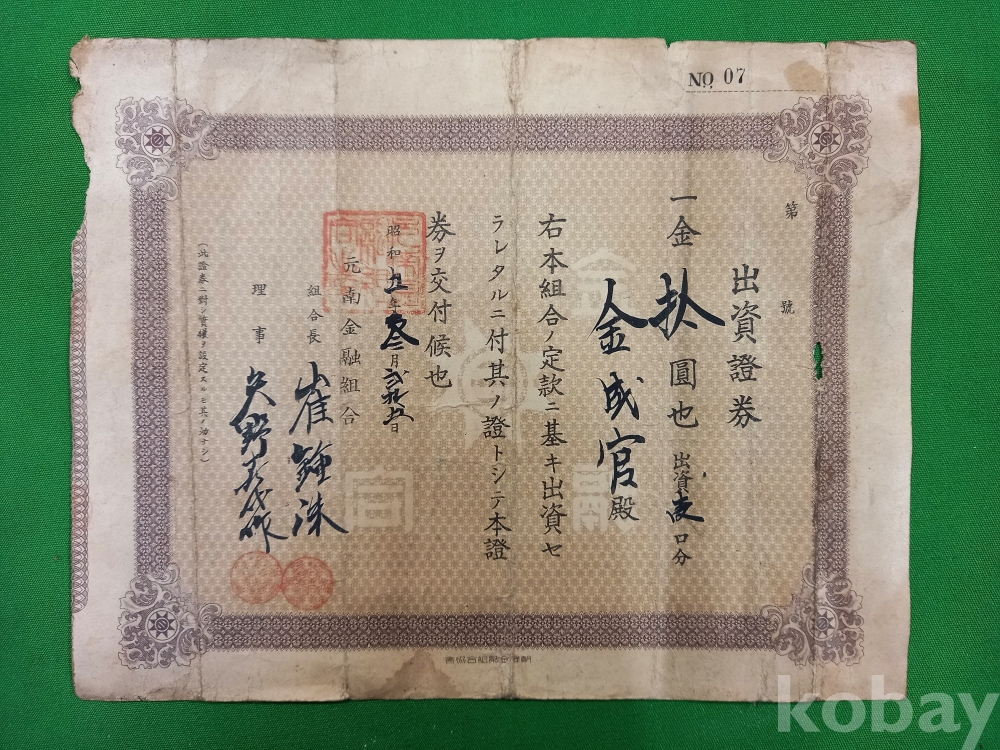 No. 07
第 號
出資證券
一金 拔圓也 出資壹口分
金成官殿
右本組合ノ定款ニ基キ出資セ
ラレタルニ付其ノ證トシテ本證
券ヲ交付候也
昭和五年參月
元南金融組合
組合長 崔鍾洙
理事 矢野
(此證券ニ對シ質權ヲ設定スルモ其ノ効ナシ)
kobay